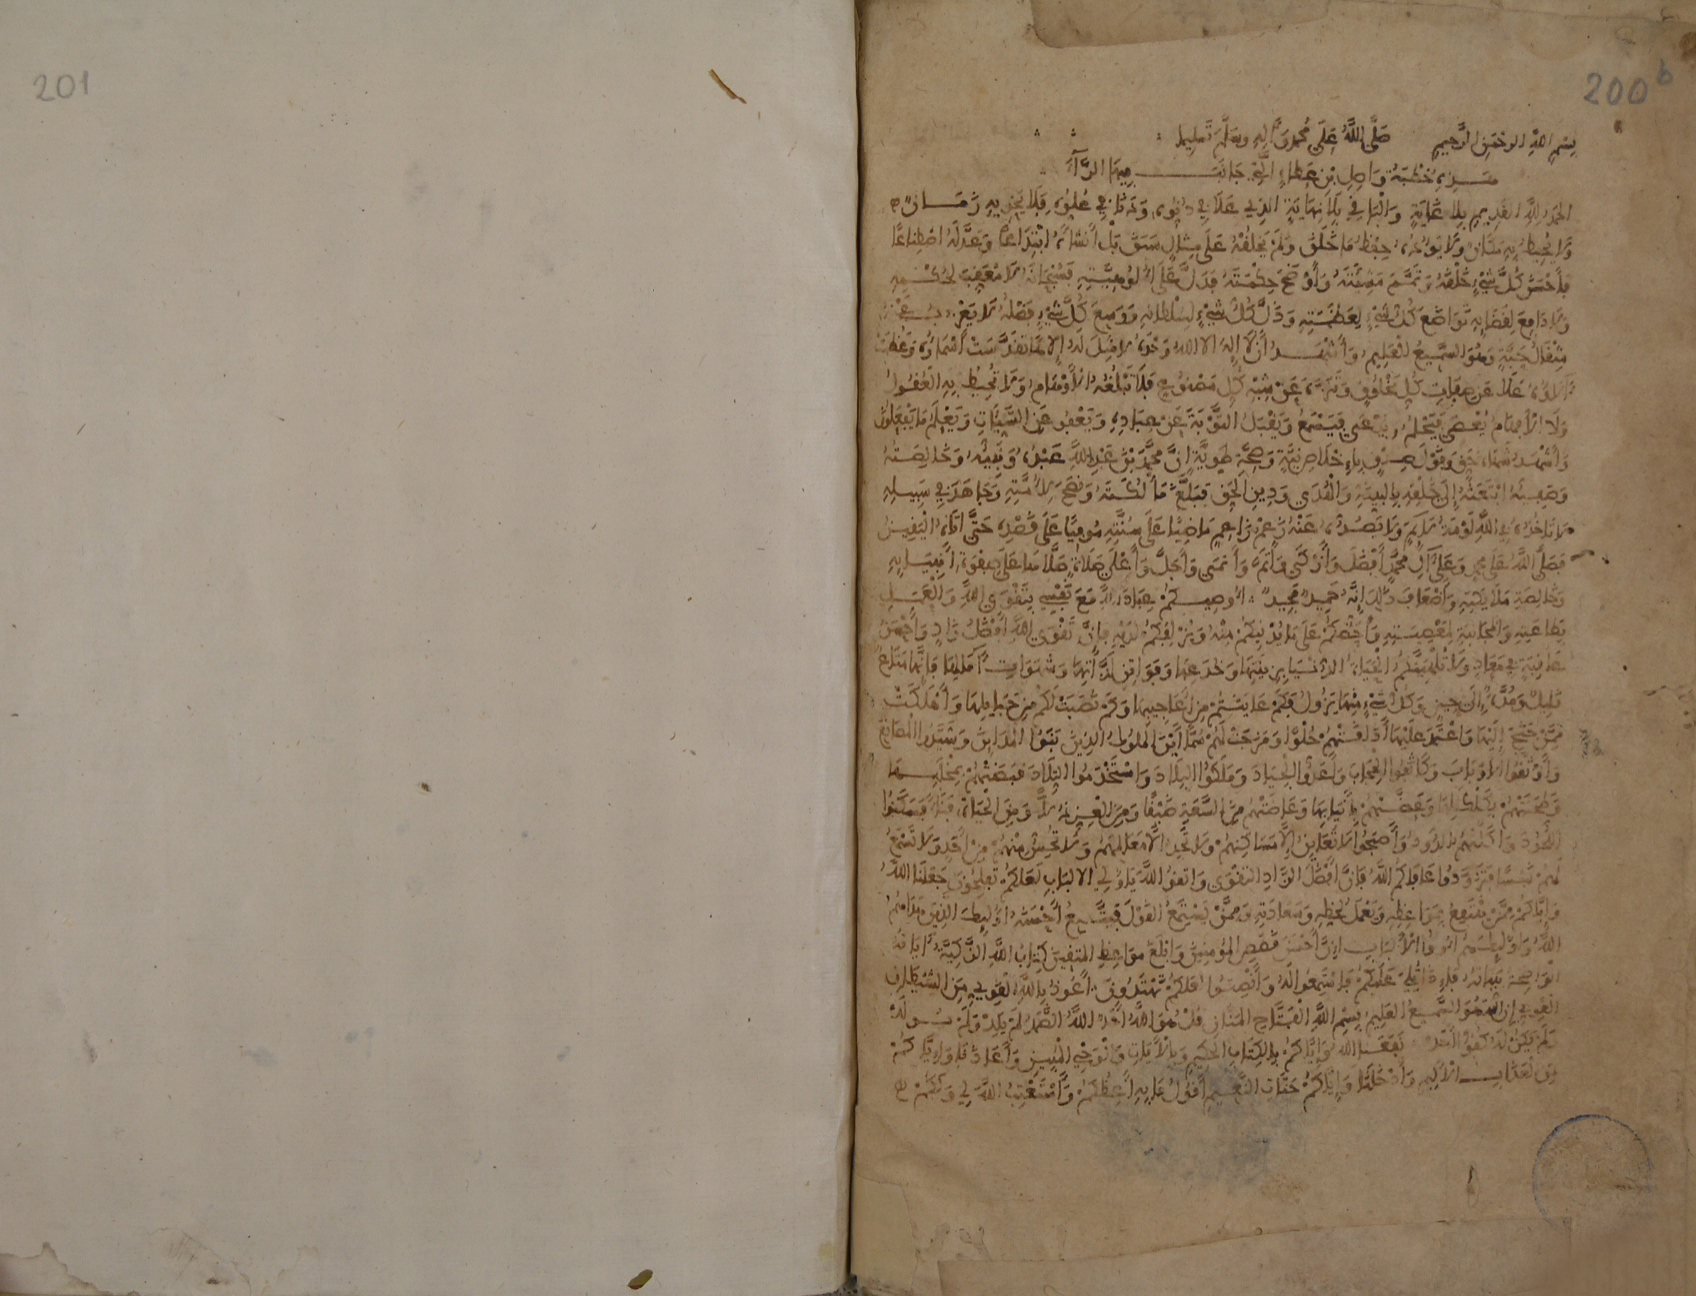 201
200b
بسم الله الرحمن الرحيم صلى الله على محمد وآله وسلم تسليما
هذه خطبة واصل بن عطاء التي جانب فيها الراء
الحمد لله القديم بلا غاية والباقي بلا نهاية الذي علا في دنوه ودنا في علوه فلا يحويه زمان
ولا يحيط به مكان ولا يؤوده حفظ ما خلق ولم يخلقه على مثال سبق بل أنشأه ابتداعا وعدله اصطناعا
فأحسن كل شيء خلقه وتمم مشيئته وأوضح حكمته فدل على ألوهيته فسبحانه لا معقب لحكمه
ولا دافع لقضائه تواضع كل شيء لعظمته وذل كل شيء لسلطانه ووسع كل شيء فضله لا يعزب عنه
مثقال حبة وهو السميع العليم وأشهد أن لا إله إلا الله وحده لا مثيل له إلها تقدست أسماؤه وعظمت
آلاؤه علا عن صفات كل مخلوق وتنزه عن شبه كل مصنوع فلا تبلغه الأوهام ولا تحيط به العقول
ولا الأفهام يعصى فيحلم ويدعى فيسمع ويقبل التوبة عن عباده ويعفو عن السيئات ويعلم ما يفعلون
وأشهد شهادة حق وقول صدق بإخلاص نية وصحة طوية إن محمد بن عبد الله عبده ونبيه وخالصته
وصفيه ابتعثه إلى خلقه بالبينة والهدى ودين الحق فبلغ مألكته ونصح لأمته وجاهد في سبيله
لا تأخذه في الله لومة لائم ولا يصده عنه زعم زاعم ماضيا على سنته موفيا على قصده حتى أتاه اليقين
فصلى الله على محمد وعلى آل محمد أفضل وأزكى وأتم وأنمى وأجل وأعلى صلاة صلاها على صفوة أنبيائه
وخالصة ملائكته وأضعاف ذلك إنه حميد مجيد أوصيكم عباد الله مع نفسي بتقوى الله والعمل
بطاعته والمجانبة لمعصيته وأحثكم على ما يدنيكم منه ويزلفكم لديه فإن تقوى الله أفضل زاد وأحسن
عاقبة في معاد ولا تلهينكم الحياة الدنيا بزينتها وخدعها وفواتن لذاتها وشهوات آمالها فإنها متاع
قليل ومدة إلى حين وكل شيء منها يزول فكم عاينتم من أعاجيبها وكم نصبت لكم من حبائلها وأهلكت
ممن جنح إليها واعتمد عليها أذاقتهم حلوا ومزجت لهم سما أين الملوك الذين بنوا المدائن وشيدوا المصانع
وأوثقوا الأبواب وكاثفوا الحجاب وأعدوا الجياد وملكوا البلاد واستخدموا التلاد قبضتهم بمحلبها
وطحنتهم بكلكلها وعضتهم بأنيابها وعاضتهم من السعة ضيقا ومن العزة ذلا ومن الحياة فناء فسكنوا
اللحود وأكلهم الدود وأصبحوا لا تعاين إلا مساكنهم ولا تجد إلا معالمهم ولا تحس منهم من أحد ولا تسمع
لهم نبسا فتزودوا عافاكم الله فإن أفضل الزاد التقوى واتقوا الله يا أولي الألباب لعلكم تفلحون جعلنا الله
وإياكم ممن ينتفع بمواعظه ويعمل لحظه وسعادته وممن يستمع القول فيتبع أحسنه أولئك الذين هداهم
الله وأولئك هم أولوا الألباب إن أحسن قصص المؤمنين وأبلغ مواعظ المتقين كتاب الله الزكية آياته
الواضحة بيناته فإذا تلي عليكم فاستمعوا له وأنصتوا لعلكم تهتدون أعوذ بالله القوي من الشيطان
الغوي إن الله هو السميع العليم بسم الله الفتاح المنان قل هو الله أحد الله الصمد لم يلد ولم يولد
ولم يكن له كفؤا أحد نفعنا الله وإياكم بالكتاب الحكيم وبالآيات والوحي المبين وأعاذنا وإياكم
من العذاب الأليم وأدخلنا وإياكم جنات النعيم أقول ما به أعظكم وأستعتب الله لي ولكم